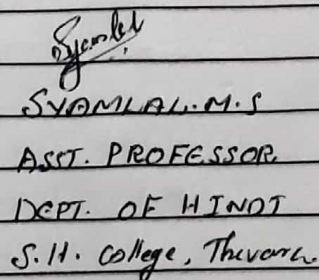 Syamlal
SYAMLAL.M.S
ASST. PROFESSOR
DEPT. OF HINDI
S.H. College, Thevara.